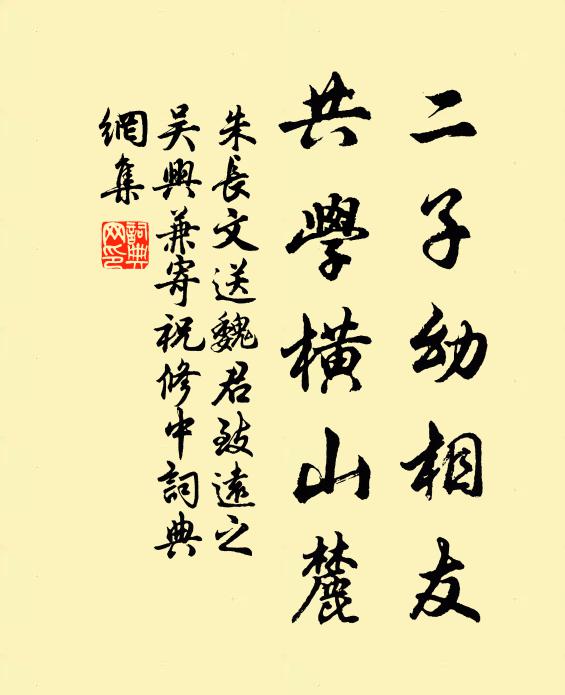 二子幼相友
共學橫山麓
朱長文送魏君致遠之
吳興兼寄祝修中詞典
網集
詞典
网印